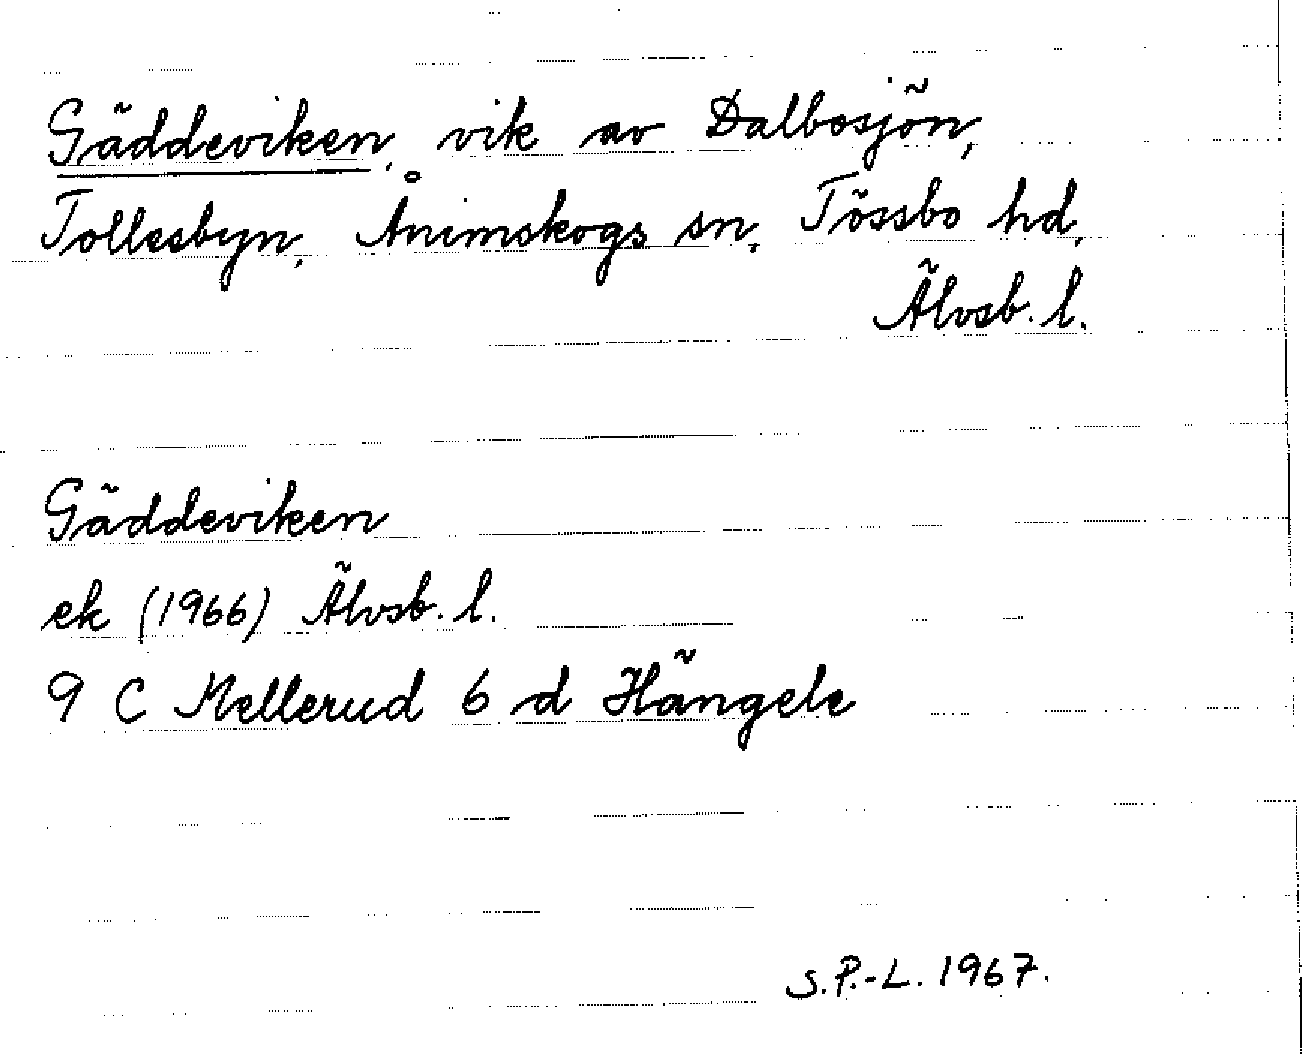 Gäddeviken, vik av Dalbosjön,
Tollesbyn, Ånimskogs sn, Tössbo hd,
Älvsb. l.
Gäddeviken
ek (1966) Älvsb. l.
9 C Mellerud 6 d Hängele
S.P.-L. 1967.